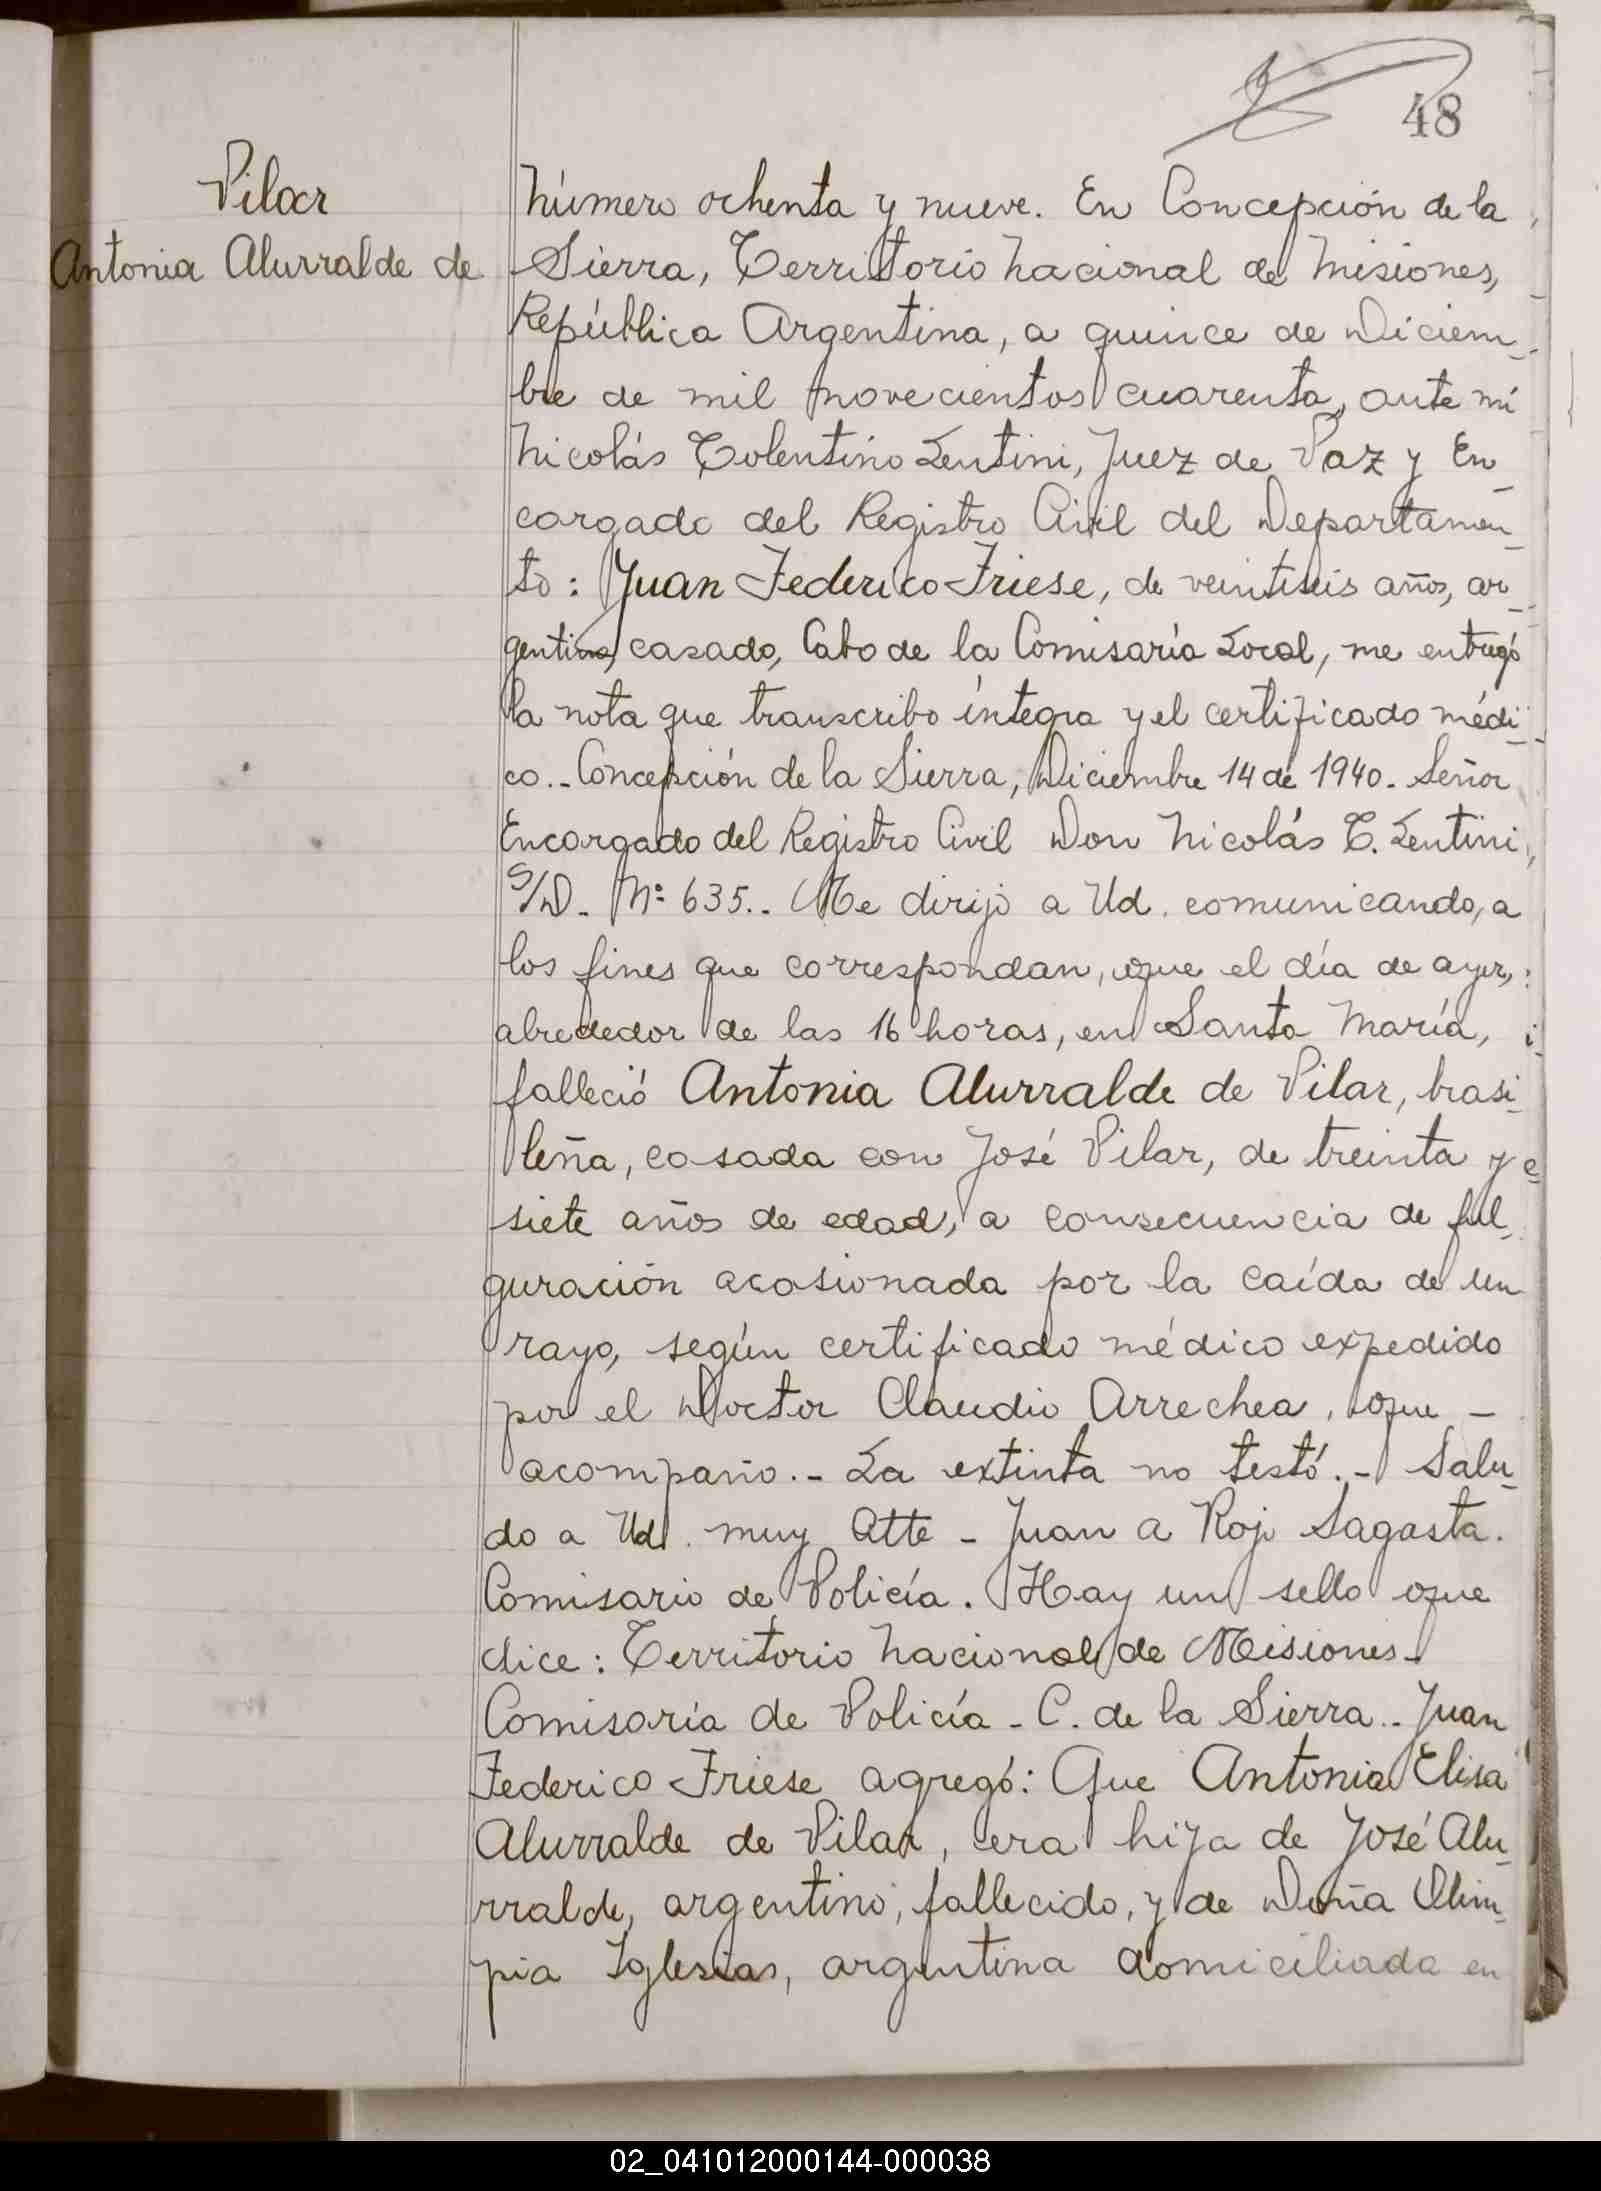 48
Vilar
Antonia Alurralde de
Número ochenta y nueve. En Concepción de la
Sierra, Territorio Nacional de Misiones,
República Argentina, a quince de Diciem-
bre de mil novecientos cuarenta, ante mí
Nicolás Tolentino Lentini, Juez de Paz y En-
cargado del Registro Civil del Departamen-
to: Juan Federico Friese, de veintiseis años, ar-
gentino, casado, Cabo de la Comisaría Local, me entregó
la nota que transcribo íntegra y el certificado médi-
co.- Concepción de la Sierra, Diciembre 14 de 1940. Señor
Encargado del Registro Civil Don Nicolás T. Lentini,
S/D. Nº 635.- Me dirijo a Ud. comunicando, a
los fines que correspondan, que el día de ayer,
alrededor de las 16 horas, en Santa María,
falleció Antonia Alurralde de Vilar, brasi-
leña, casada con José Vilar, de treinta y
siete años de edad, a consecuencia de ful-
guración acasionada por la caída de un
rayo, según certificado médico expedido
por el Doctor Claudio Arrechea, que -
acompaño.- La extinta no testó.- Salu-
do a Ud. muy Atte - Juan A Rojo Sagasta.
Comisario de Policía. Hay un sello que
dice: Territorio Nacional de Misiones-
Comisaría de Policía - C. de la Sierra.- Juan
Federico Friese agregó: Que Antonia Elisa
Alurralde de Vilar, era hija de José Alu-
rralde, argentino, fallecido, y de Doña Olim-
pia Iglesias, argentina domiciliada en
02_041012000144-000038